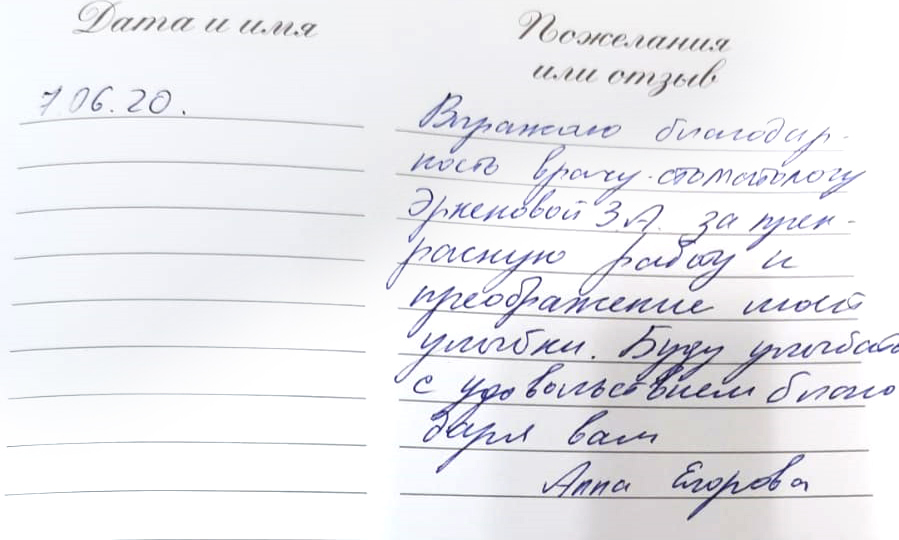 Дата и имя
Пожелания
или отзыв
7.06.20.
Выражаю благодар-
ность врачу-стоматологу
Эркеновой З.А. за прек-
расную работу и
преображение моей
улыбки. Буду улыбать
с удовольствием благо
даря вам
Анна Егорова